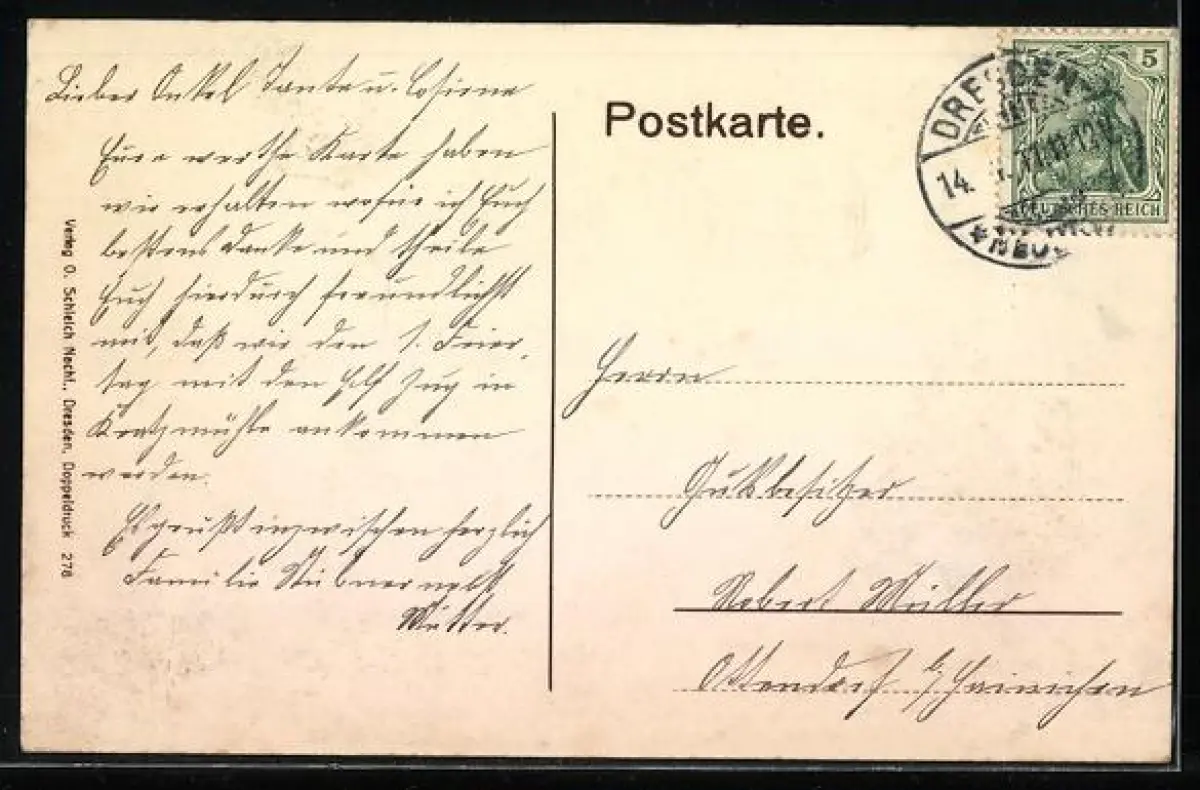 Lieber Onkel Tante u. Cosiene
Eure werthe Karte haben
wir erhalten wofür ich Euch
bestens danke und theile
Euch hierdurch freundlichst
mit, daß wir den 1. Feier-
tag mit den Elf Zug in
Kratzmühle ankommen
werden.
Es grüßt inzwischen herzlich
Familie Stübner nebst
Mutter.
Verlag O. Schleich Nachf., Dresden, Doppeldruck 278
Postkarte.
DRESDEN
14. 11-12V
*NEUST
5 5
DEUTSCHES REICH
Herrn
Gutsbesitzer
Robert Müller
Ottendorf b/Hainichen